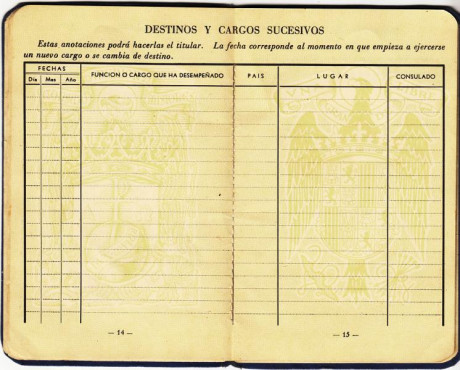 DESTINOS Y CARGOS SUCESIVOS
Estas anotaciones podrá hacerlas el titular. La fecha corresponde al momento en que empieza a ejercerse
un nuevo cargo o se cambia de destino.
FECHAS
Día Mes Año
FUNCION O CARGO QUE HA DESEMPEÑADO
PAIS
LUGAR
CONSULADO
— 14 —
— 15 —